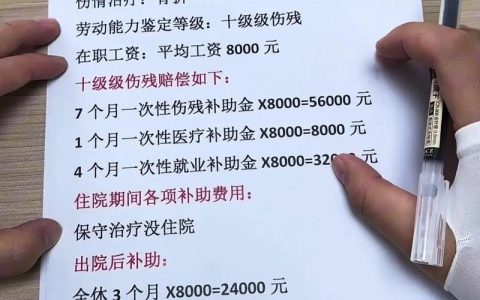 伤情治疗：骨折
劳动能力鉴定等级：十级级伤残
在职工资：平均工资 8000 元
十级级伤残赔偿如下：
7 个月一次性伤残补助金 X8000=56000 元
1 个月一次性医疗补助金 X8000=8000 元
4 个月一次性就业补助金 X8000=32000 元
住院期间各项补助费用：
保守治疗没住院
出院后补助：
全休 3 个月 X8000=24000 元